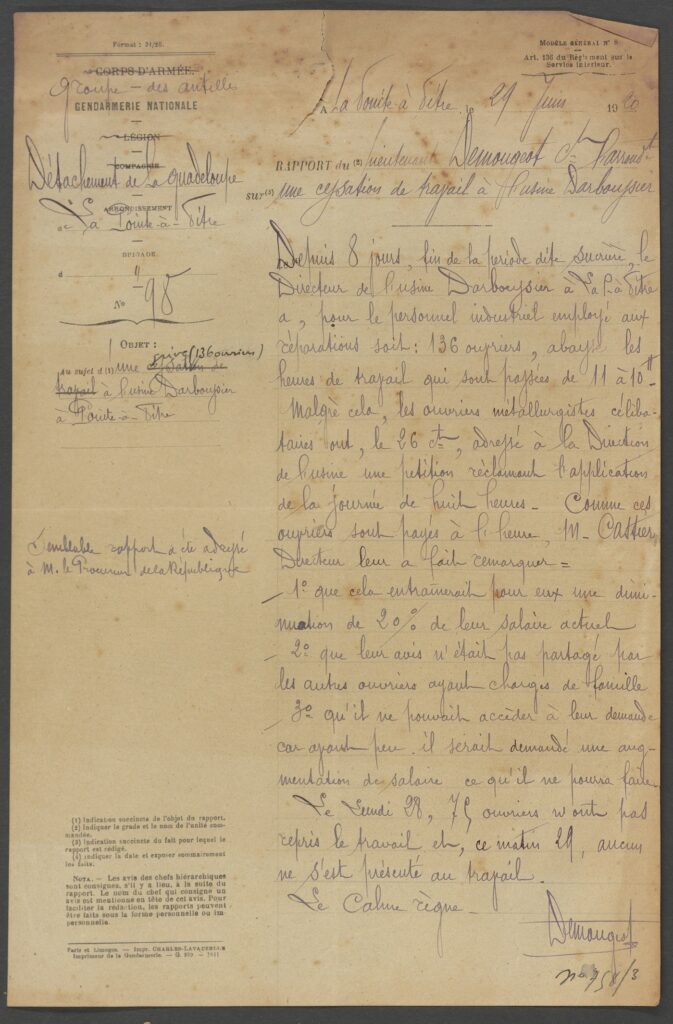 Format : 21/26.
CORPS D'ARMÉE.
Groupe - des antilles
GENDARMERIE NATIONALE
LÉGION
COMPAGNIE
Détachement de La Guadeloupe
ARRONDISSEMENT
de La Pointe-à-Pitre
BRIGADE
d
No 98
OBJET :
grève (136 ouvriers)
au sujet d (1) une cessation de
travail à l'usine Darboussier
à Pointe-à-Pitre
Semblable rapport a été adressé
à M. le Procureur de la République
(1) Indication succincte de l'objet du rapport.
(2) Indiquer le grade et le nom de l'unité com-
mandée.
(3) Indication succincte du fait pour lequel le
rapport est rédigé.
(4) Indiquer la date et exposer sommairement
les faits.
NOTA. — Les avis des chefs hiérarchiques
sont consignés, s'il y a lieu, à la suite du
rapport. Le nom du chef qui consigne un
avis est mentionné en tête de cet avis. Pour
faciliter la rédaction, les rapports peuvent
être faits sous la forme personnelle ou im-
personnelle.
Paris et Limoges. — Impr. CHARLES-LAVAUZELLE
Imprimeur de la Gendarmerie.
MODÈLE GÉNÉRAL N° 8
Art. 136 du Règlement sur le
Service intérieur.
A La Pointe-à-Pitre, le 29 Juin 1920
RAPPORT du (2) lieutenant Demougeot Ct
sur (3) une cessation de travail à l'usine Darboussier
Depuis 8 jours, fin de la periode dite sucrière, le
Directeur de l'usine Darboussier à La P. à Pitre
a, pour le personnel industriel employé aux
réparations soit : 136 ouvriers, abaissé les
heures de travail qui sont passées de 11 à 10.
Malgré cela, les ouvriers métallurgistes céliba-
taires ont, le 26 ct, adressé à la Direction
de l'usine une pétition réclamant l'application
de la journée de huit heures - Comme ces
ouvriers sont payés à l'heure, M- Castier,
Directeur leur a fait remarquer =
- 1° que cela entraînerait pour eux une dimi-
nuation de 20% de leur salaire actuel
- 2° que leur avis n'était pas partagé par
les autres ouvriers ayant charges de famille
- 3° qu'il ne pouvait accéder à leur demande
car avant peu il serait demandé une aug-
mentation de salaire ce qu'il ne pourra faire.
Le Lundi 28, 75 ouvriers n'ont pas
repris le travail et, ce matin 29, aucun
ne s'est présenté au travail.
Le Calme règne -
Demougeot
No 758/3